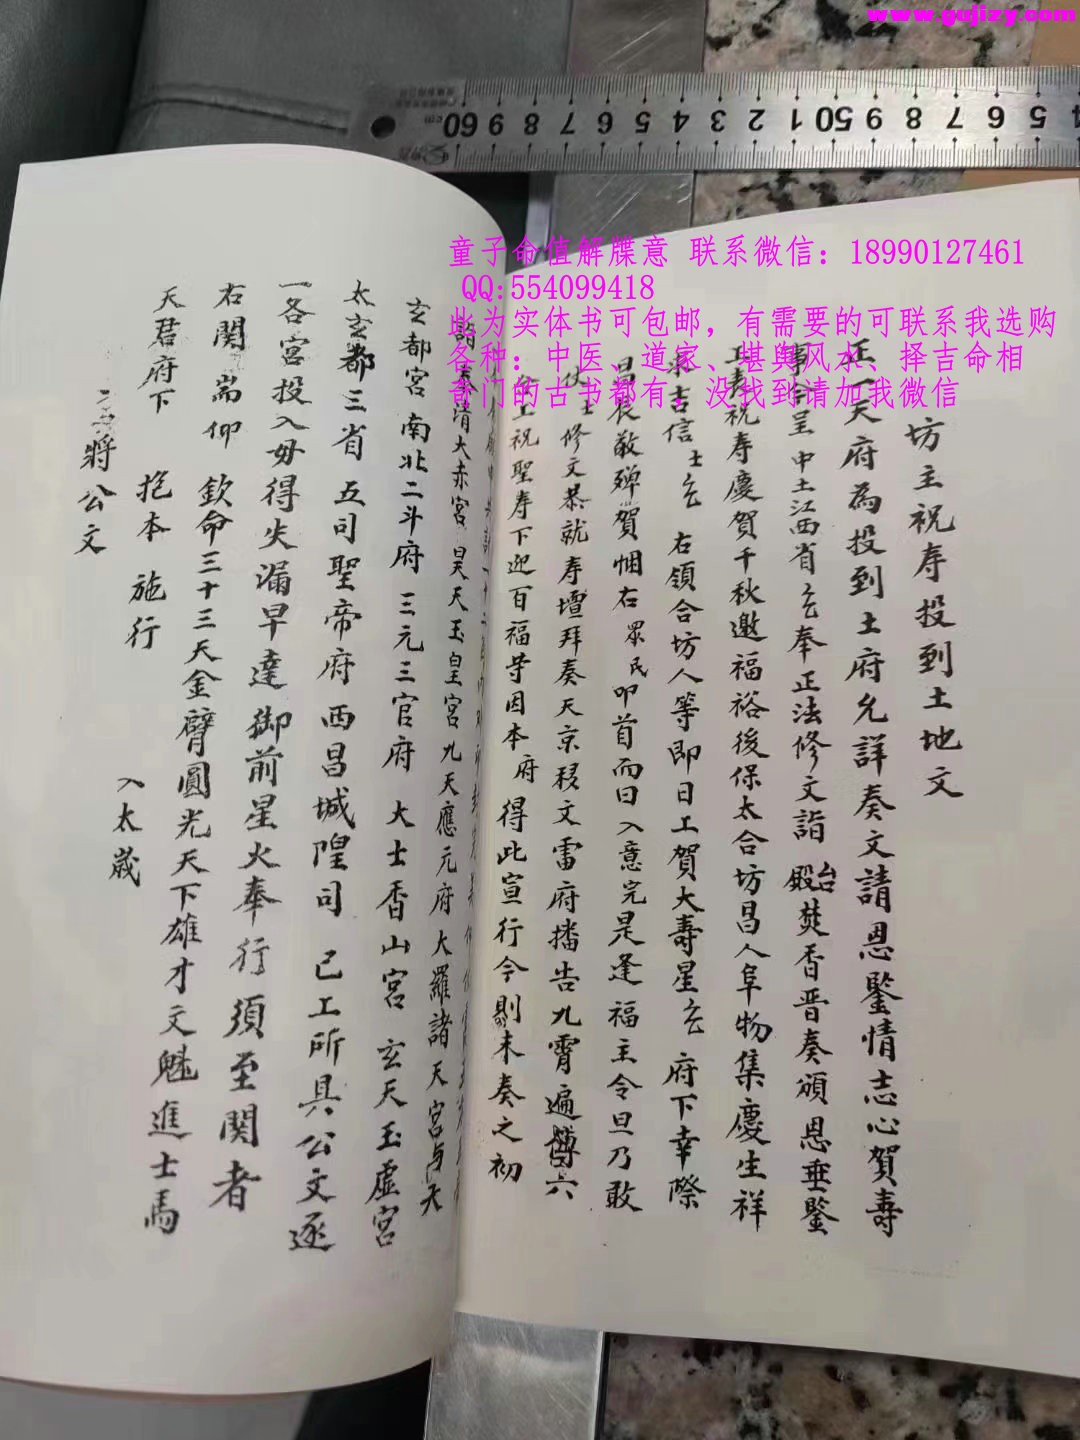 www.gujizy.com
童子命值解牒意 联系微信：18990127461
QQ:554099418
此为实体书可包邮，有需要的可联系我选购
各种：中医、道家、堪舆风水、择吉命相
奇门的古书都有，没找到请加我微信
cm 60 9 8 7 6 5 4 3 2 1 50 9 8 7 6 5 4
坊主祝寿投到土地文
正一天府為投到土府允詳奏文請恩鑒情志心賀壽
事今呈中土江西省厶奉正法修文詣殿焚香晋奏頒恩垂鑒
工奏祝寿慶賀千秋邀福裕後保太合坊昌人阜物集慶生祥
求吉信士厶 右領合坊人等即日工賀大壽星厶 府下幸際
昌辰敬殚賀悃右眾民叩首而曰入意完是逢福主令旦乃敢
伏士修文恭就寿壇拜奏天京移文雷府播告九霄遍六
工祝聖寿下迎百福等因本府得此宣行今剔未奏之初
清大赤宮 昊天玉皇宮 九天應元府 大羅諸天宮
玄都宮 南北二斗府 三元三官府 大士香山宮 玄天玉虛宮
太玄都三省 五司聖帝府 西昌城隍司 已工所具公文逐
一各宮投入毋得失漏早達御前星火奉行須至関者
右関耑仰 欽命三十三天金臂圓光天下雄才文魁進士馬
天君府下 抱本 施行
將公文 入太歲